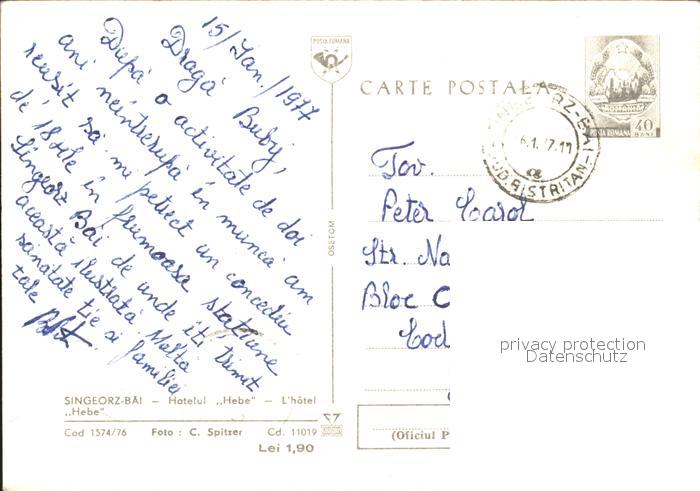 15/Jan./1977
Dragă Buby,
După o activitate de doi
ani neîntreruptă în muncă am
reusit să-mi petrect un concediu
de 18 zile în frumoasa stațiune
Singeorz Băi de unde îți trimit
această ilustrată. Multă
sănătate ție si familiei
tale
POSTA ROMANA
CARTE POSTALA
POSTA ROMANA 40 BANI
SINGEORZ-BAI
6.1.77.17
JUD. BISTRITA-N
Tov.
Peter Carol
Str. Na
Bloc C
Cod
privacy protection
Datenschutz
OSETOM
SINGEORZ-BĂI — Hotelul „Hebe" — L'hôtel
„Hebe"
Cod 1574/76 Foto : C. Spitzer Cd. 11019
Lei 1,90
(Oficiul P